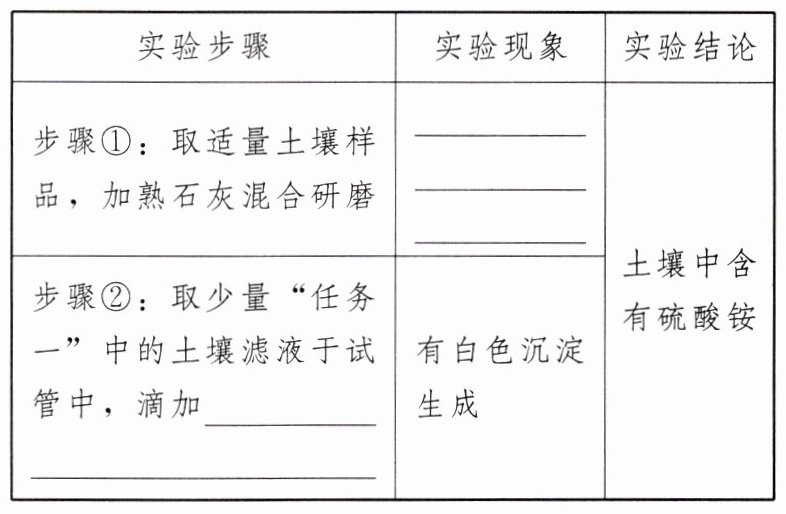 实验步骤
实验现象
实验结论
步骤①：取适量土壤样
品，加熟石灰混合研磨
步骤②：取少量“任务
一”中的土壤滤液于试
管中，滴加
有白色沉淀
生成
土壤中含
有硫酸铵